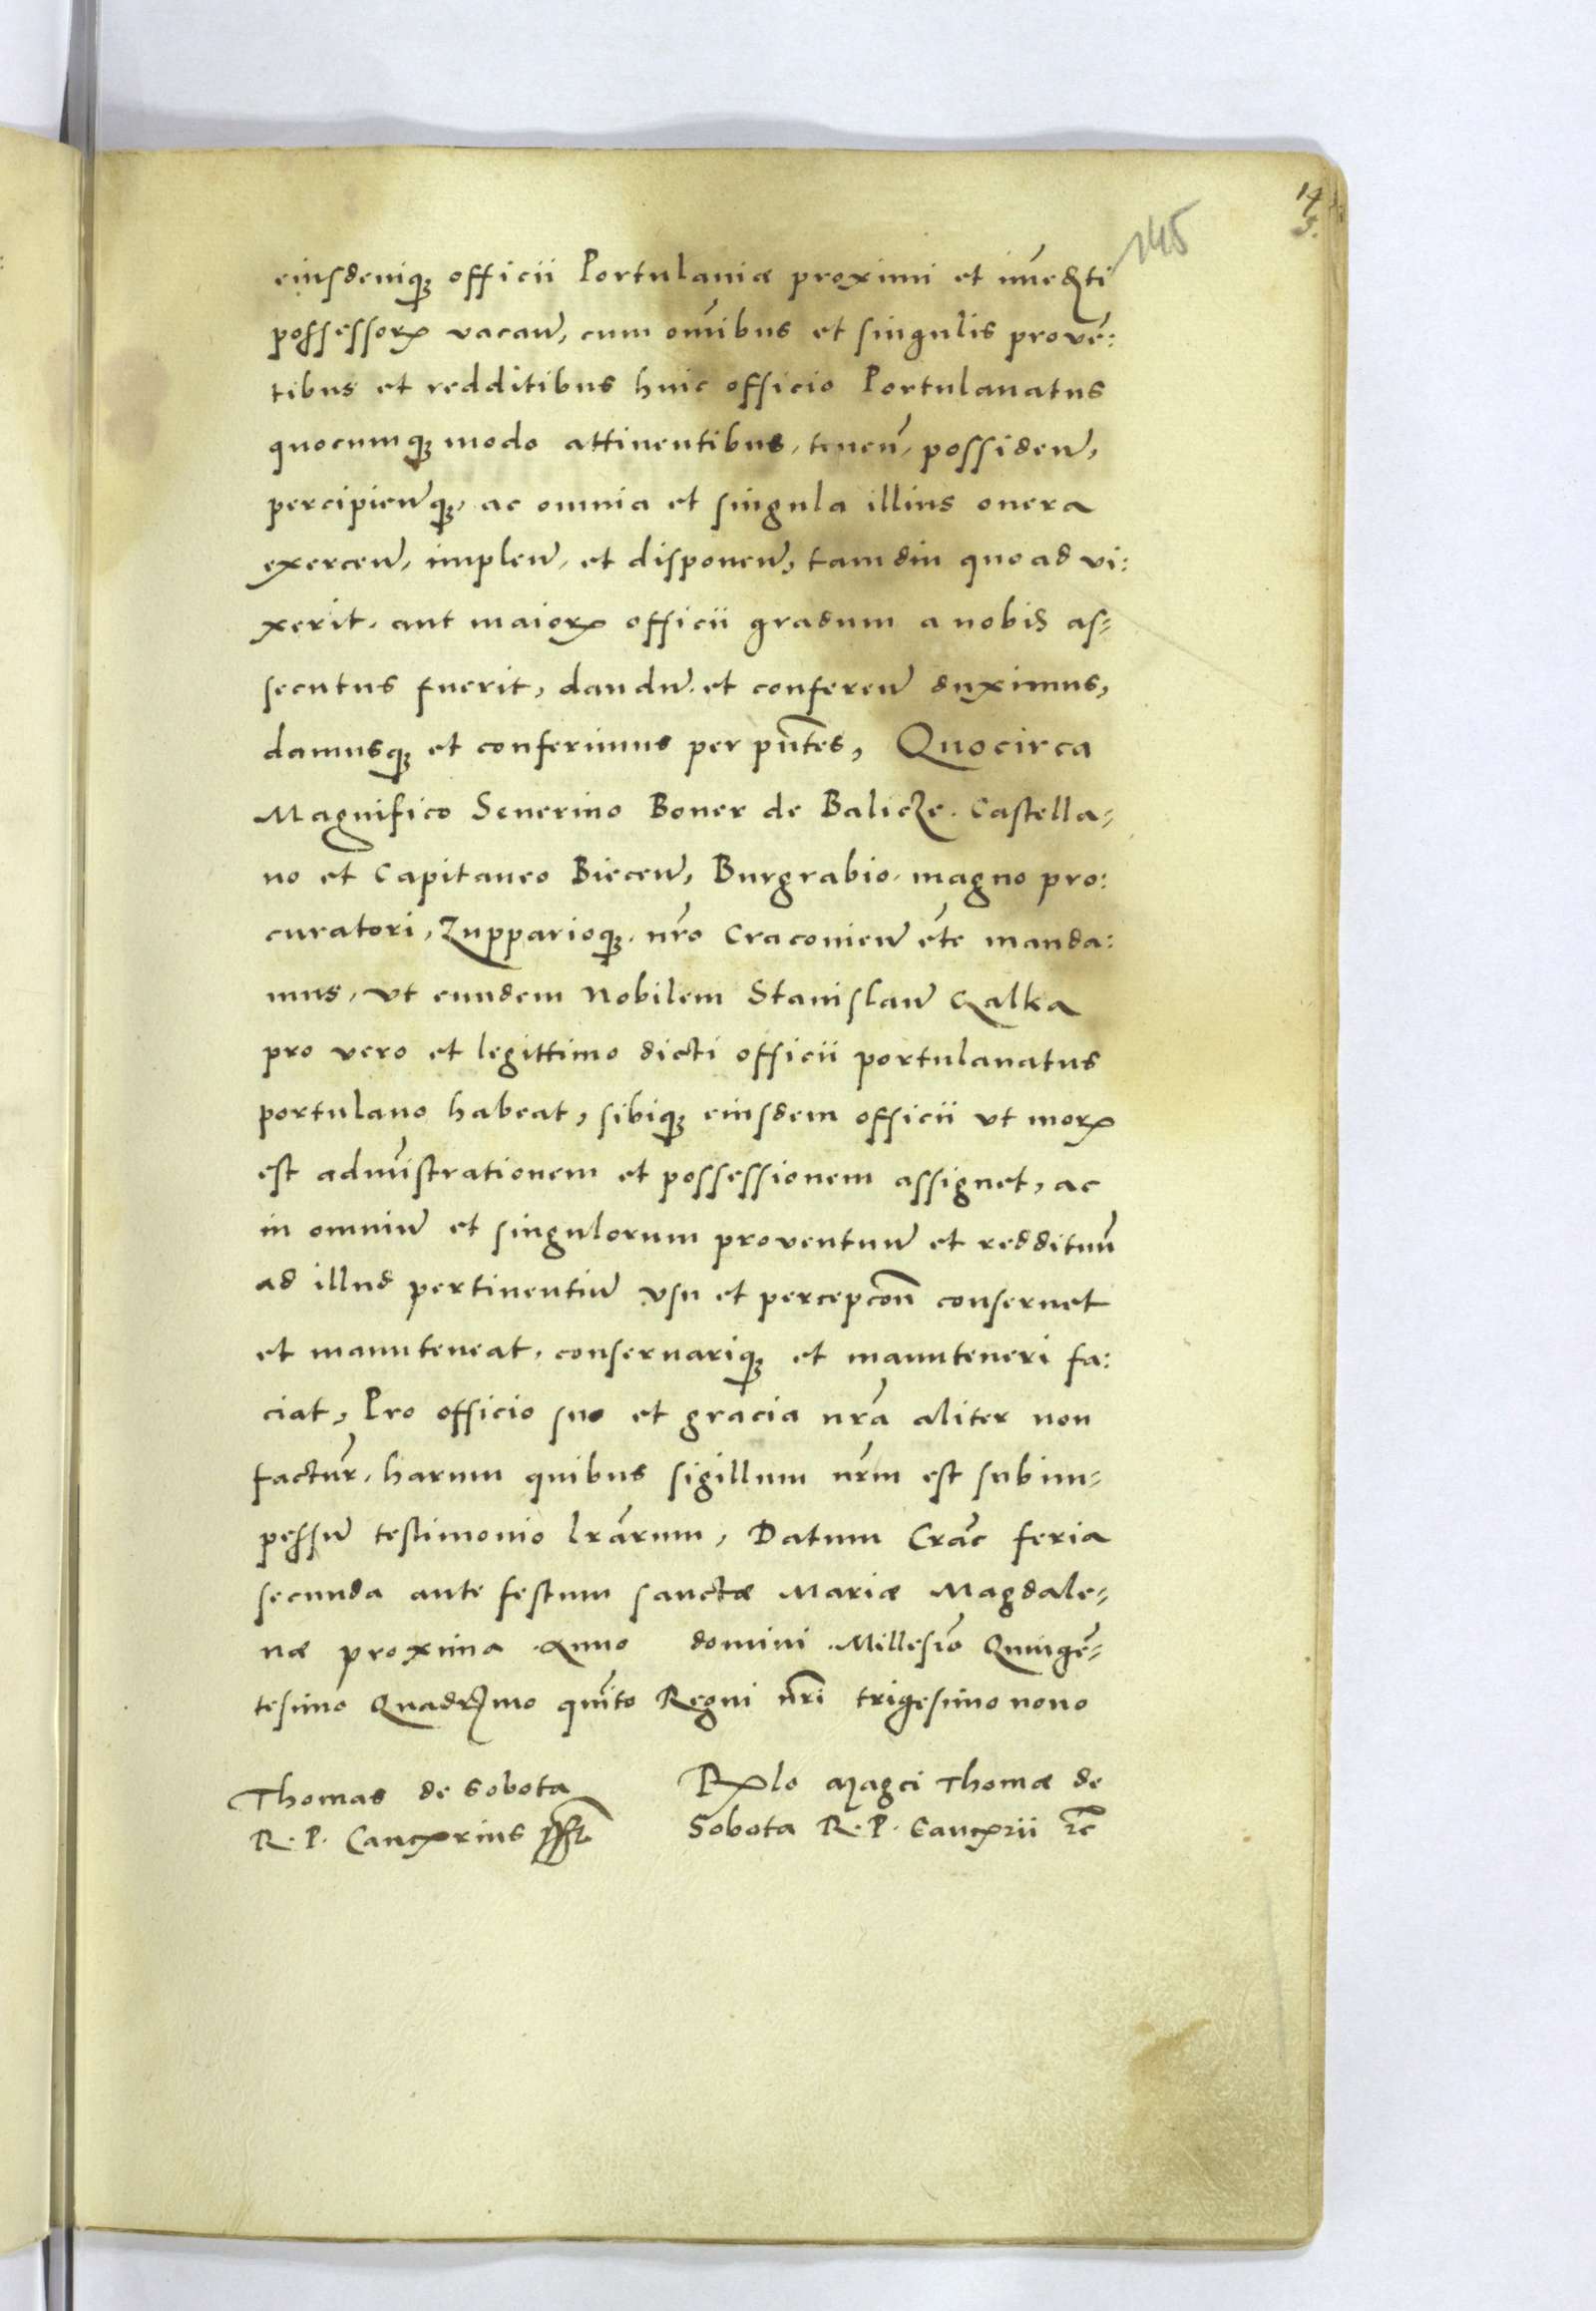 145
14
5.
eiusdemq₃ officii Portulaniæ proximi et im̄edti
possessorꝭ vacan̄, cum om̄ibus et singulis provē:
tibus et redditibus huic officio Portulanatus
quocumq₃ modo attinentibus, tenen̄, possiden̄,
percipien̄q₃, ac omnia et singula illius onera
exercen̄, implen̄, et disponen̄, tamdiu quoad vi:
xerit, aut maiorꝭ officii gradum a nobis as-
secutus fuerit, dandū et conferen̄ duximus,
damusq₃ et conferimus per pn̄tes, Quocirca
Magnifico Seuerino Boner de Balicze. Castella-
no et Capitaneo Biecen̄, Burgrabio, magno pro:
curatori, Zupparioq₃, nr̄o Cracouien̄ ēte manda:
mus, vt eundem Nobilem Stanislaū Galka
pro vero et legittimo dicti officii portulanatus
portulano habeat, sibiq₃ eiusdem officii vt morꝭ
est admīstrationem et possessionem assignet, ac
in omniū et singulorum proventuū et reddituū
ad illud pertinentiū vsu et percepcōn̄ conseruet
et manuteneat, conseruariq₃ et manuteneri fa:
ciat, Pro officio suo et gracia nr̄a aliter non
factur̄, harum quibus sigillum nr̄m est subim-
pessū testimonio lr̄arum, Datum Crac̄ feria
secunda ante festum sanctæ Mariæ Magdale-
næ proxima Anno domini Millesīo Quingē-
tesimo Quadrmo quīto Regni nr̄i trigesimo nono
Thomas de Sobota
R. P. Cancꝭrius sst
Rꝭlo Magci Thomæ de
Sobota R. P. Cancꝭrii rc̄